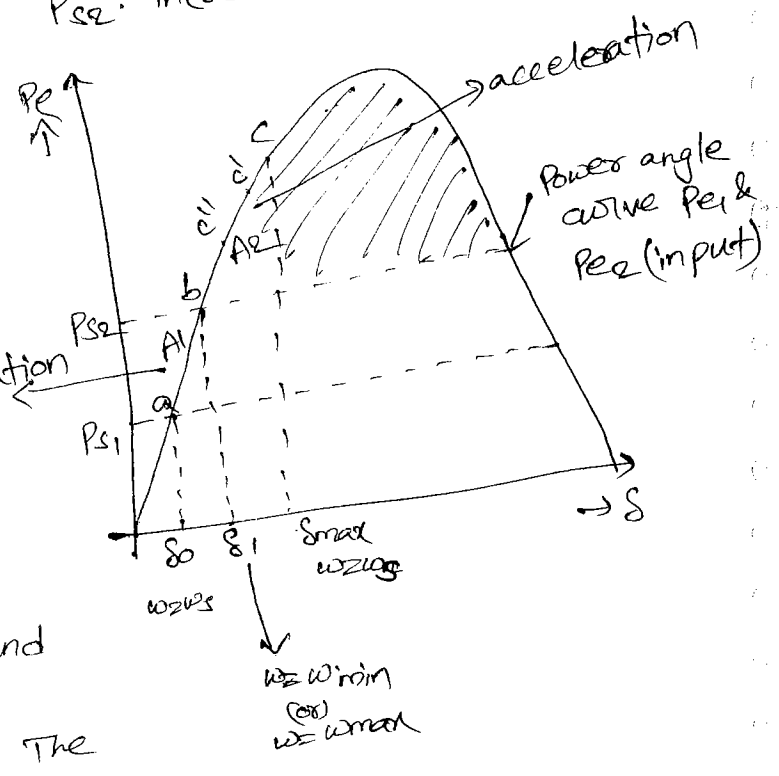 Ps2.
acceleration
Pe
c
c'
Power angle
curve Pe1 &
Pe2 (input)
c"
A2
b
Ps2
A1
tion
a
Ps1
δ0 δ1 δmax
→ δ
ω=ωs
ω=ωs
nd
ω=ωmin
(or)
ω=ωmax
The